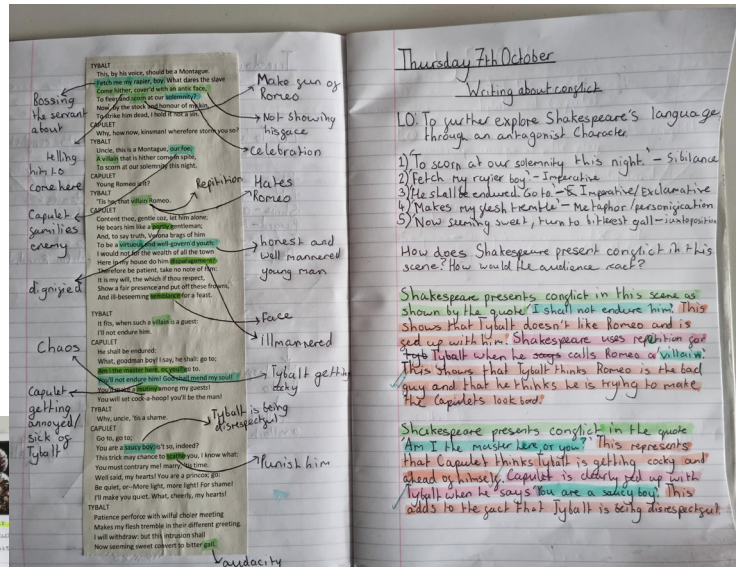 TYBALT
This, by his voice, should be a Montague.
Fetch me my rapier, boy. What dares the slave
Come hither, cover'd with an antic face,
To fleer and scorn at our solemnity?
Now, by the stock and honour of my kin,
To strike him dead, I hold it not a sin.
CAPULET
Why, how now, kinsman! wherefore storm you so?
TYBALT
Uncle, this is a Montague, our foe,
A villain that is hither come in spite,
To scorn at our solemnity this night.
CAPULET
Young Romeo is it?
TYBALT
'Tis he, that villain Romeo.
CAPULET
Content thee, gentle coz, let him alone;
He bears him like a portly gentleman;
And, to say truth, Verona brags of him
To be a virtuous and well-govern'd youth:
I would not for the wealth of all the town
Here in my house do him disparagement:
Therefore be patient, take no note of him:
It is my will, the which if thou respect,
Show a fair presence and put off these frowns,
And ill-beseeming semblance for a feast.
TYBALT
It fits, when such a villain is a guest:
I'll not endure him.
CAPULET
He shall be endured:
What, goodman boy! I say, he shall: go to;
Am I the master here, or you? go to.
You'll not endure him! God shall mend my soul!
You'll make a mutiny among my guests!
You will set cock-a-hoop! you'll be the man!
TYBALT
Why, uncle, 'tis a shame.
CAPULET
Go to, go to;
You are a saucy boy: is't so, indeed?
This trick may chance to scathe you, I know what:
You must contrary me! marry, 'tis time.
Well said, my hearts! You are a princox; go:
Be quiet, or--More light, more light! For shame!
I'll make you quiet. What, cheerly, my hearts!
TYBALT
Patience perforce with wilful choler meeting
Makes my flesh tremble in their different greeting.
I will withdraw: but this intrusion shall
Now seeming sweet convert to bitter gall.
Bossing
the servant
about
telling
him to
come here
Capulet
families
enemy
dignified
Chaos
Capulet
getting
annoyed/
sick of
Tybalt
Make fun of
Romeo
Not showing
his face
celebration
Repitition
Hates
Romeo
honest and
well mannered
young man
Face
illmannered
Tybalt getting
cocky
Tybalt is being
disrespectful
Punish him
audacity
Thursday 7th October
Writing about conflict
LO: To further explore Shakespeare's language
through an antagonist Character.
1) 'To scorn at our solemnity this night.' - Sibilance
2) 'Fetch my rapier boy' - Imperative
3) 'He shall be endured. Go to. - Imperative/Exclamative
4) 'Makes my flesh tremble' - Metaphor/personification
5) 'Now seeming sweet, turn to bitterest gall - juxtaposition
How does Shakespeare present conflict in this
scene? How would the audience react?
Shakespeare presents conflict in this scene as
shown by the quote 'I shall not endure him.' This
shows that Tybalt doesn't like Romeo and is
fed up with him. Shakespeare uses repetition for
Tybalt when he says calls Romeo a 'villain'.
This shows that Tybalt thinks Romeo is the bad
guy and that he thinks he is trying to make
the Capulets look bad.
Shakespeare presents conflict in the quote
'Am I the master here or you?' This represents
that Capulet thinks Tybalt is getting cocky and
ahead of himself. Capulet is clearly fed up with
Tybalt when he says 'You are a saucy boy'. This
adds to the fact that Tybalt is being disrespectful.